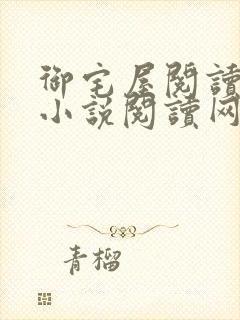 御宅屋閱讀
小說閱讀网
青榴